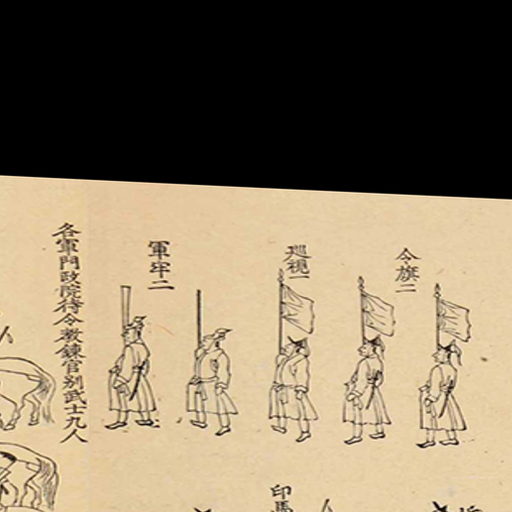 令旗二
巡視一
軍牢二
各軍門政院待令教鍊官别武士九人
印馬